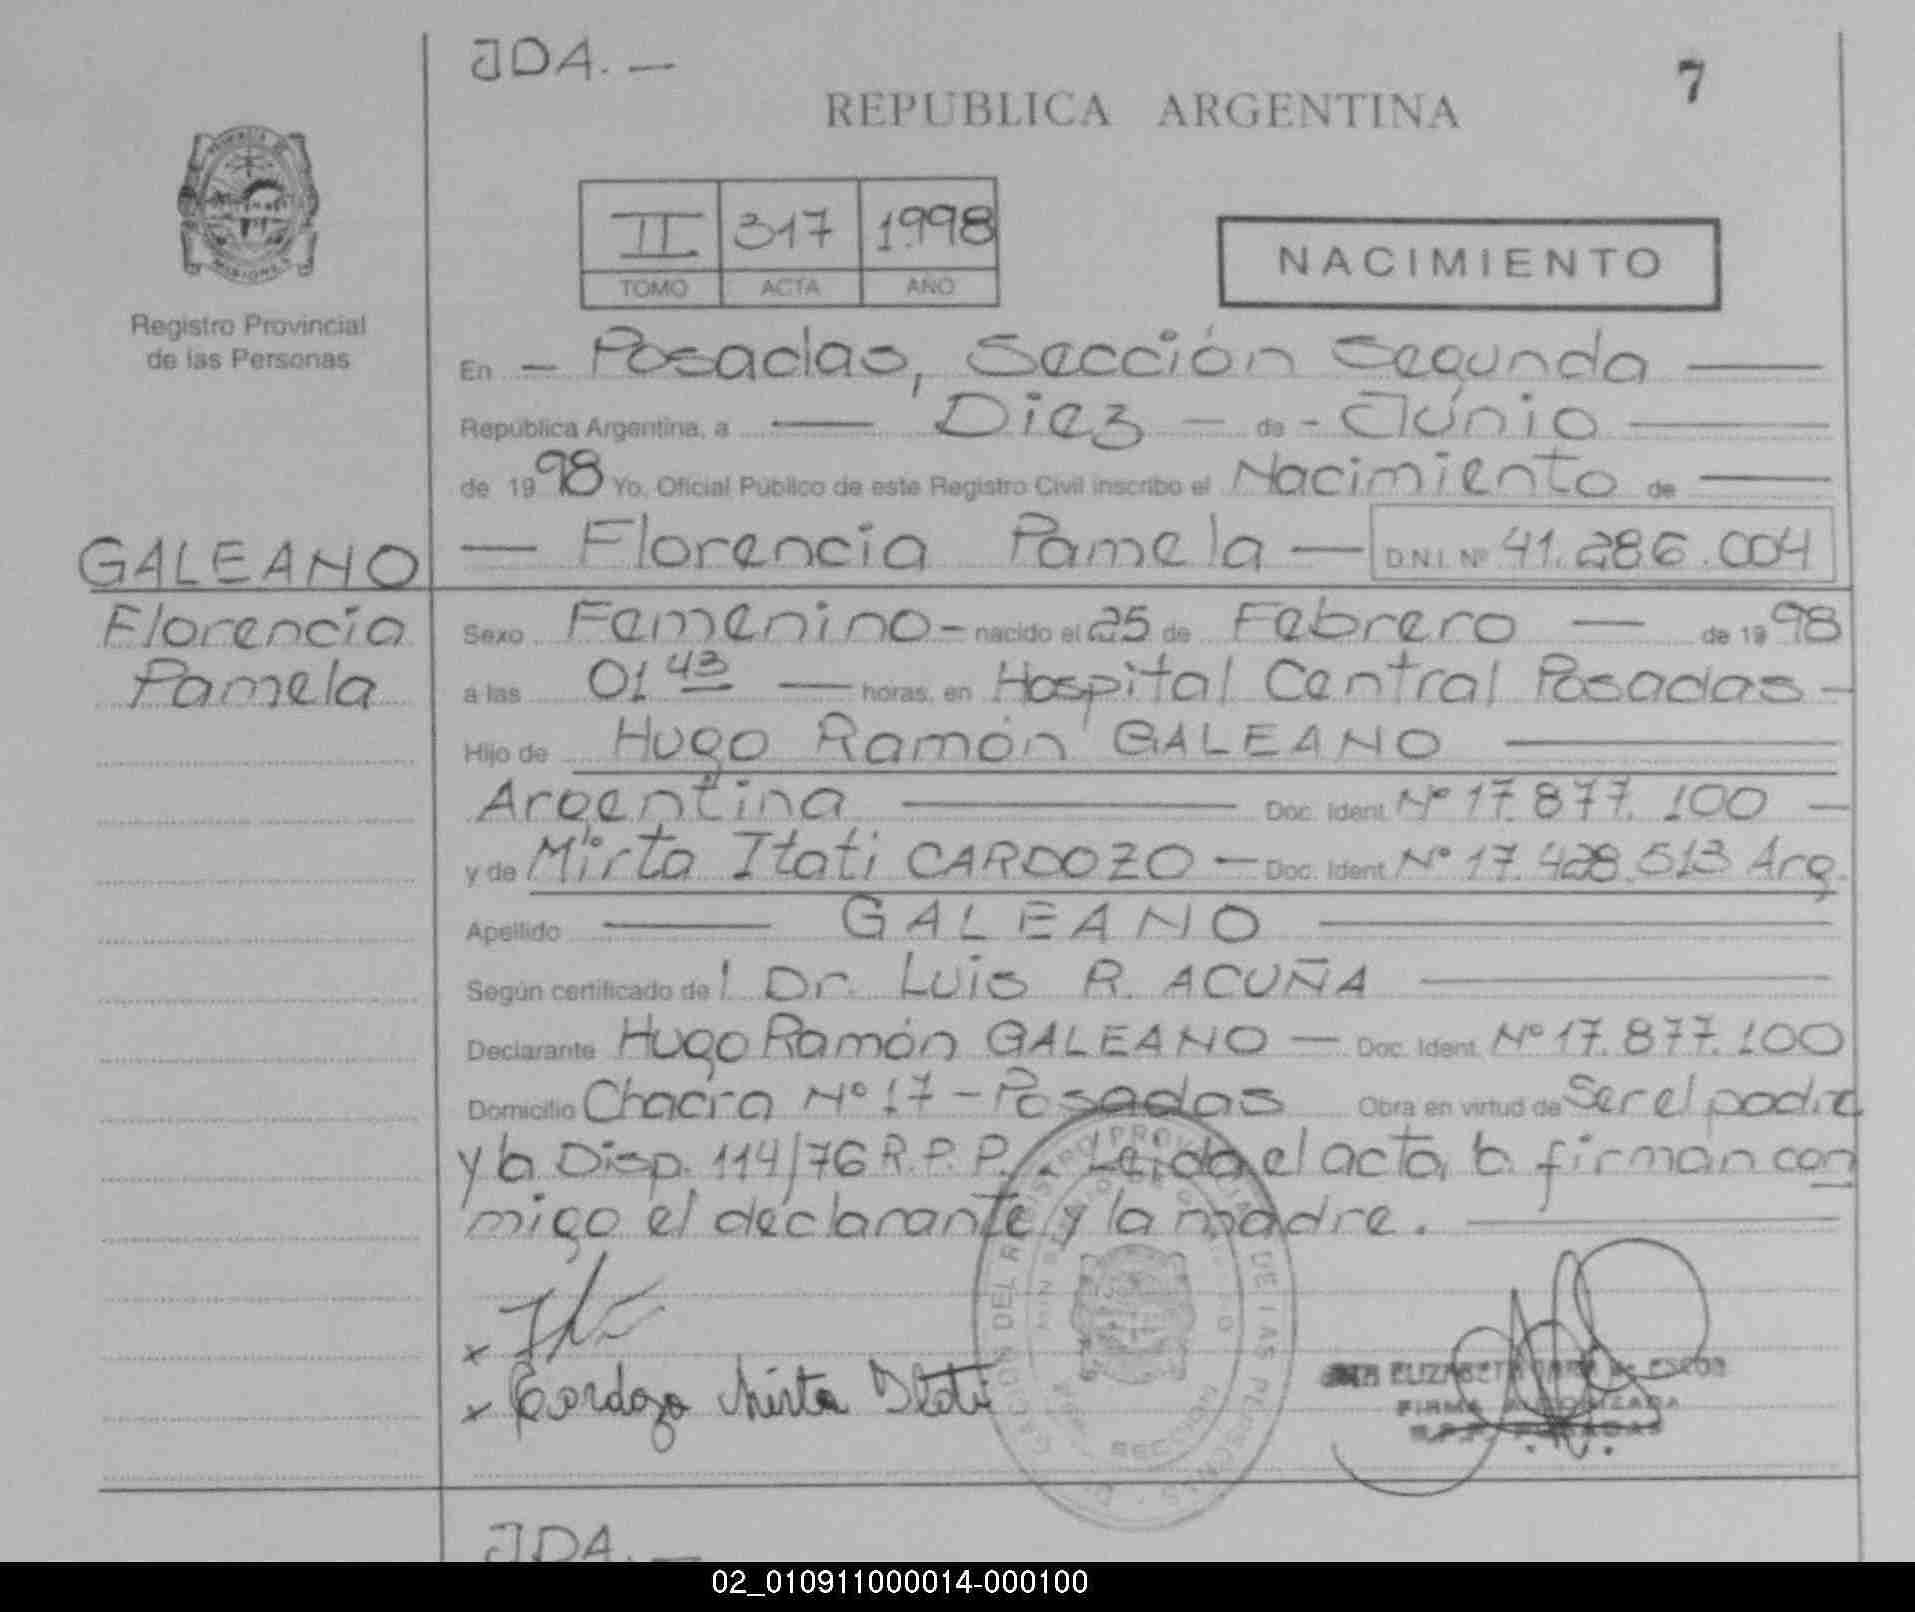 JDA. —
7
REPUBLICA ARGENTINA
II 317 1998
TOMO ACTA AÑO
NACIMIENTO
MISIONES
Registro Provincial
de las Personas
En — Posadas, Sección Segunda —
República Argentina, a — Diez — de - Júnio —
de 1998 Yo, Oficial Público de este Registro Civil inscribo el Nacimiento de —
— Florencia Pamela — D.N.I. Nº 41.286.004
GALEANO
Florencia
Pamela
Sexo Femenino - nacido el 25 de Febrero — de 1998
a las 01 43 — horas, en Hospital Central Posadas -
Hijo de Hugo Ramón GALEANO —
Argentina — Doc. Ident. Nº 17.877.100 —
y de Mirta Itati CARDOZO — Doc. Ident. Nº 17.428.513 Arg.
Apellido — GALEANO —
Según certificado de l Dr. Luis R. ACUÑA —
Declarante Hugo Ramón GALEANO — Doc. Ident. Nº 17.877.100
Domicilio Chacra Nº 17 - Posadas Obra en virtud de Ser el padre
y la Disp. 114/76 R.P.P. Leida el acta, la firman con
migo el declarante y la madre. —
x
x Cardozo Mirta Itati
DEL REGISTRO PROVINCIAL DE LAS PERSONAS
ELIZABETH
FIRMA AUTORIZADA
R.P.P. POSADAS
JDA. —
02_010911000014-000100